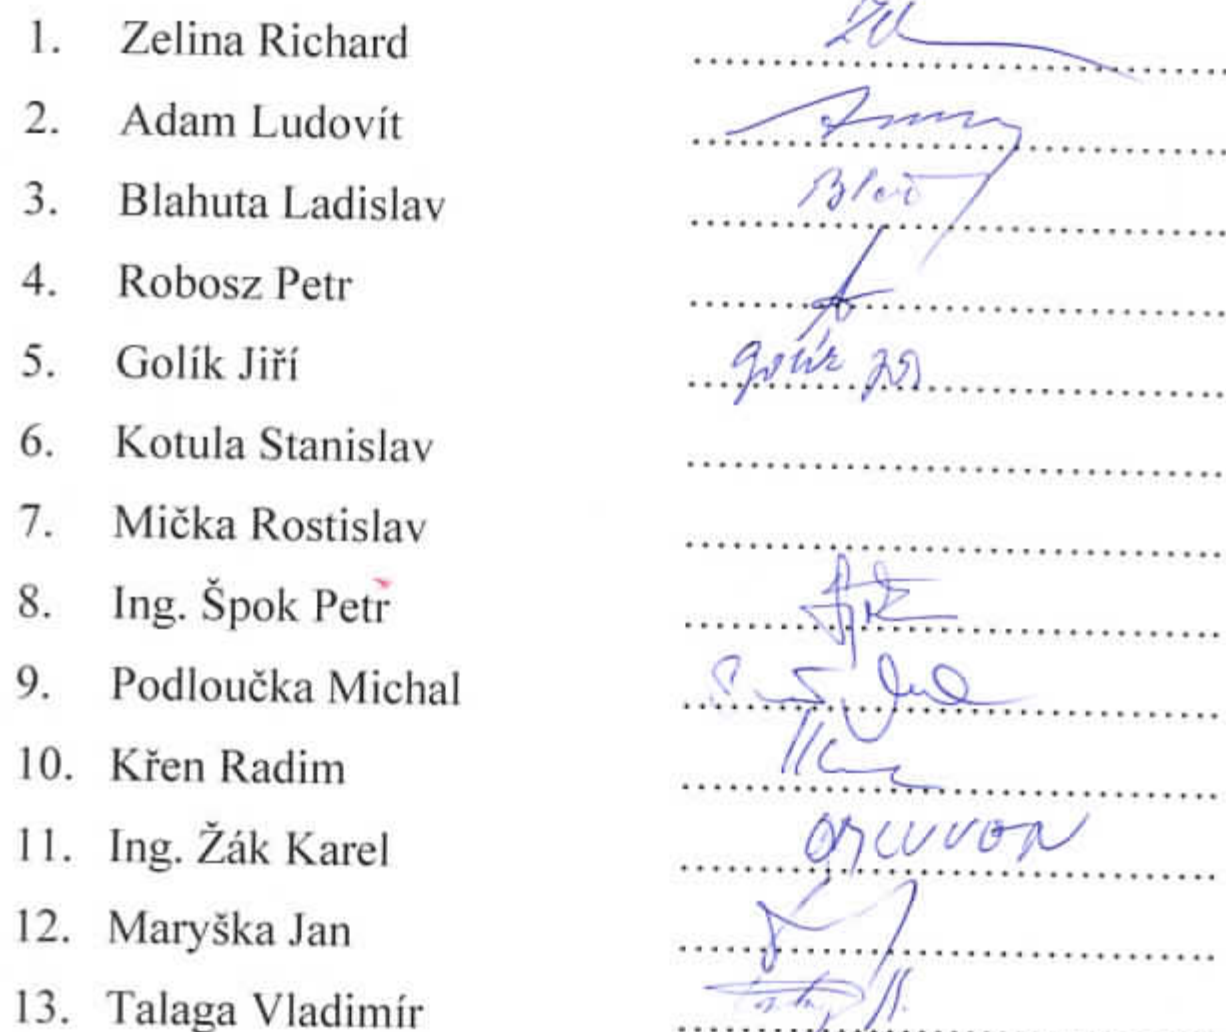 1. Zelina Richard
2. Adam Ludovít
3. Blahuta Ladislav
4. Robosz Petr
5. Golík Jiří
6. Kotula Stanislav
7. Mička Rostislav
8. Ing. Špok Petr
9. Podloučka Michal
10. Křen Radim
11. Ing. Žák Karel
12. Maryška Jan
13. Talaga Vladimír